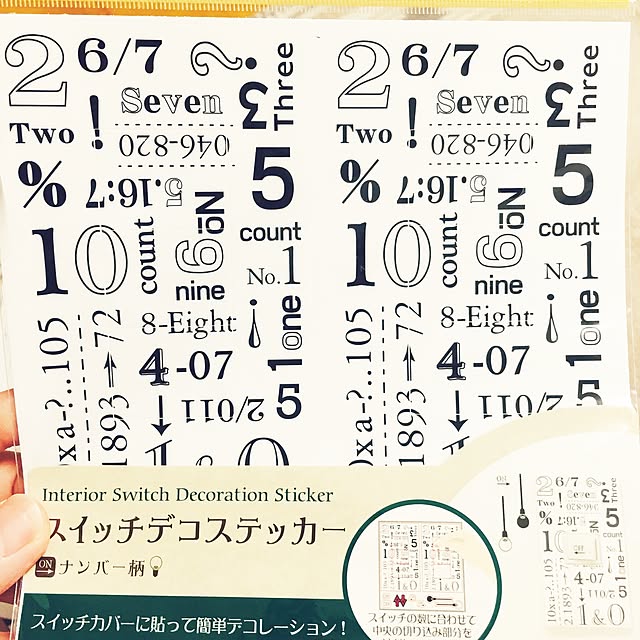 2 6/7 ?
Seven £ Three
Two ! 046-820
% 5.16:7 5
10 count 6 No:
nine count
No.1
8-Eight ! 1one
4-07
0xa-?..105 1893→72 ↓ 2/011 5
1&0
2 6/7 ?
Seven £ Three
Two ! 046-820
% 5.16:7 5
10 count 6 No:
nine count
No.1
8-Eight ! 1one
4-07
0xa-?..105 1893→72 ↓ 2/011 5
Interior Switch Decoration Sticker
スイッチデコステッカー
ON ナンバー柄
スイッチカバーに貼って簡単デコレーション!
スイッチの数に合わせて
中央の切り込み部分を